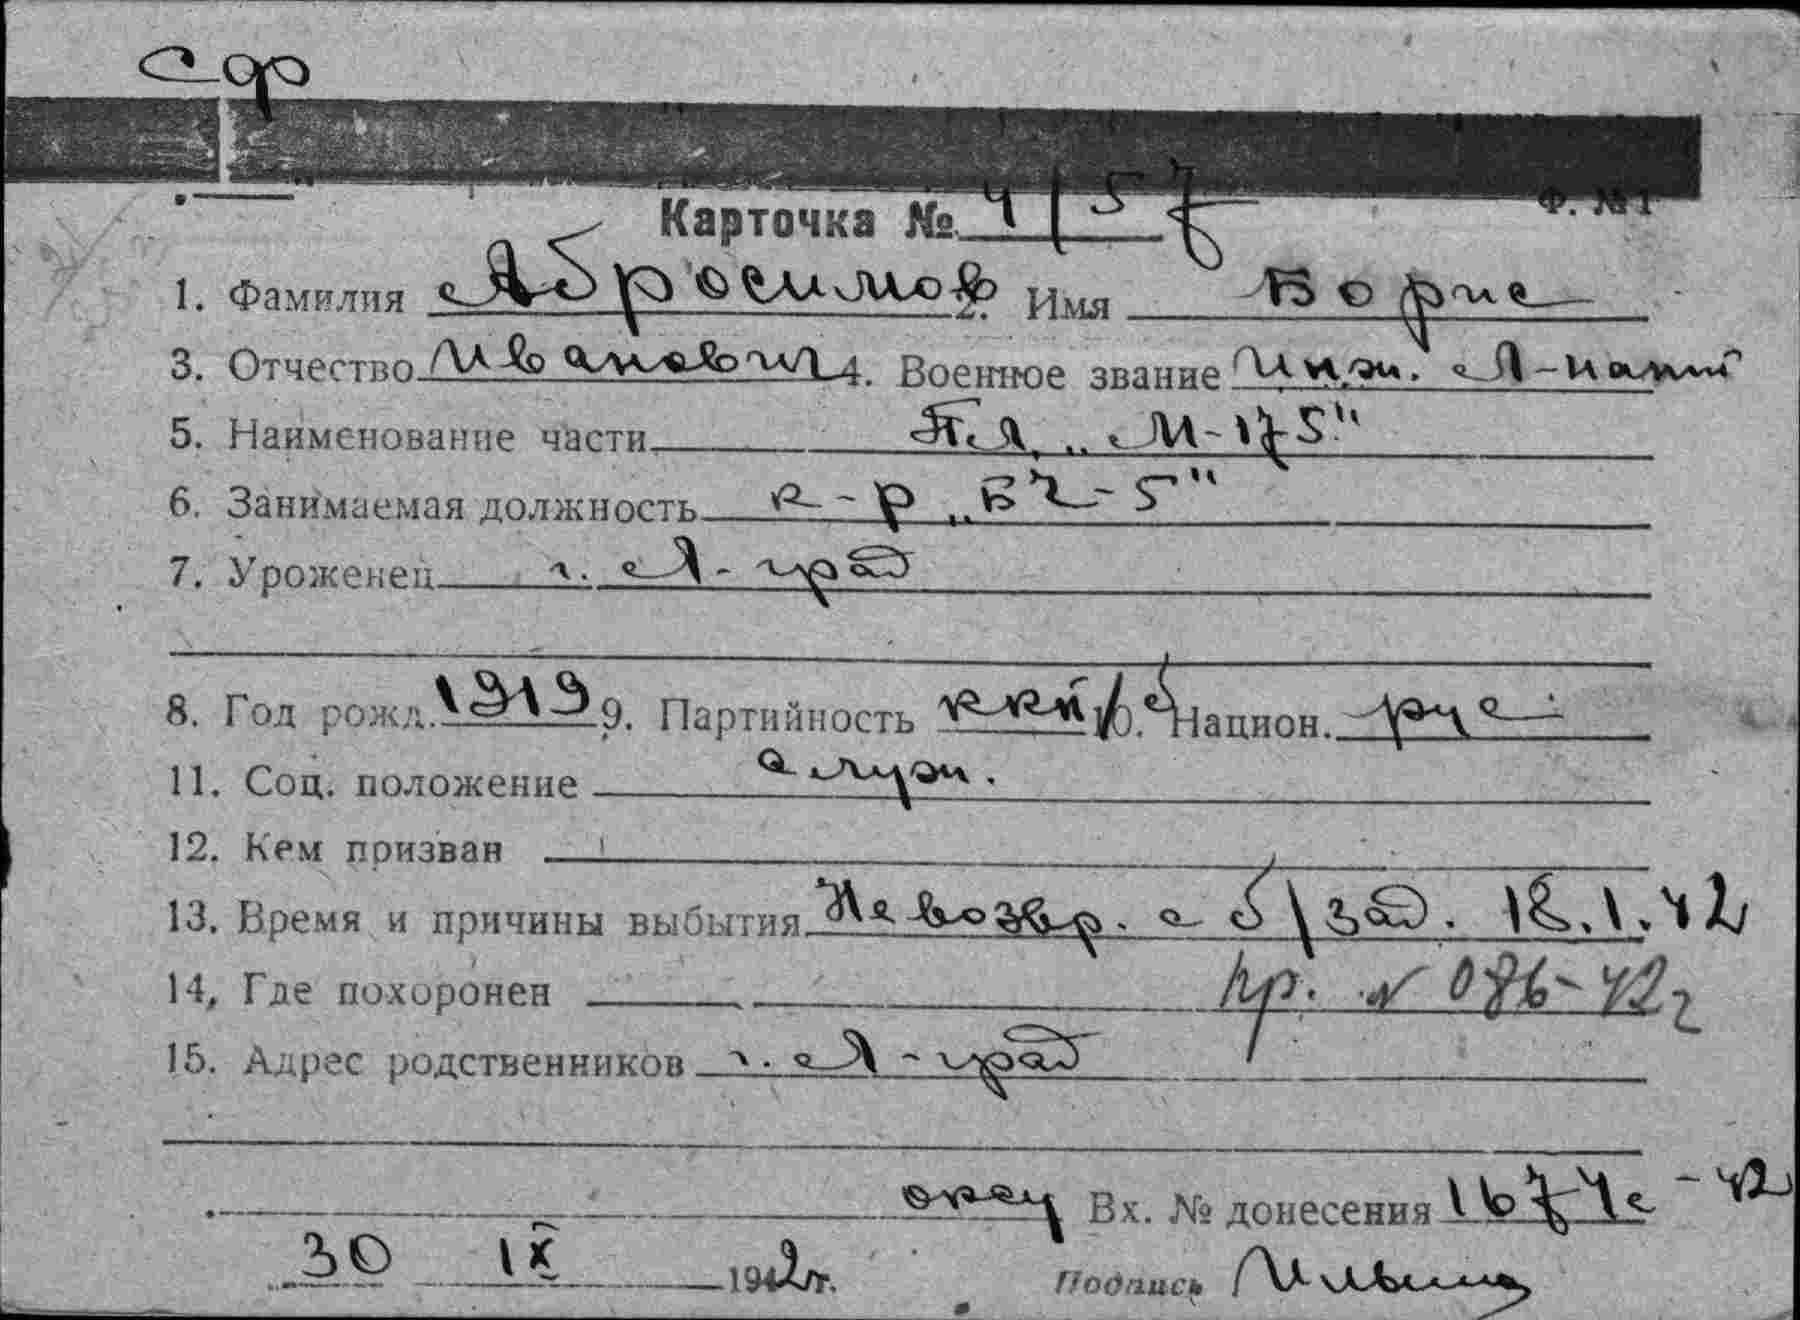 Сф
Ф. №1
Карточка № 4/57
1. Фамилия Абросимов 2. Имя Борис
3. Отчество Иванович 4. Военное звание Инж. Л-нант
5. Наименование части ПЛ „М-175"
6. Занимаемая должность к-р „БЧ-5"
7. Уроженец г. Л-град
8. Год рожд. 1919 9. Партийность ККП/б 10. Национ. рус.
11. Соц. положение служ.
12. Кем призван
13. Время и причины выбытия Не возвр. с б/зад. 18.1.42
14, Где похоронен Пр. № 086-42г
15. Адрес родственников г. Л-град
Вх. № донесения 1674с-42
30 IX 1942г. Подпись